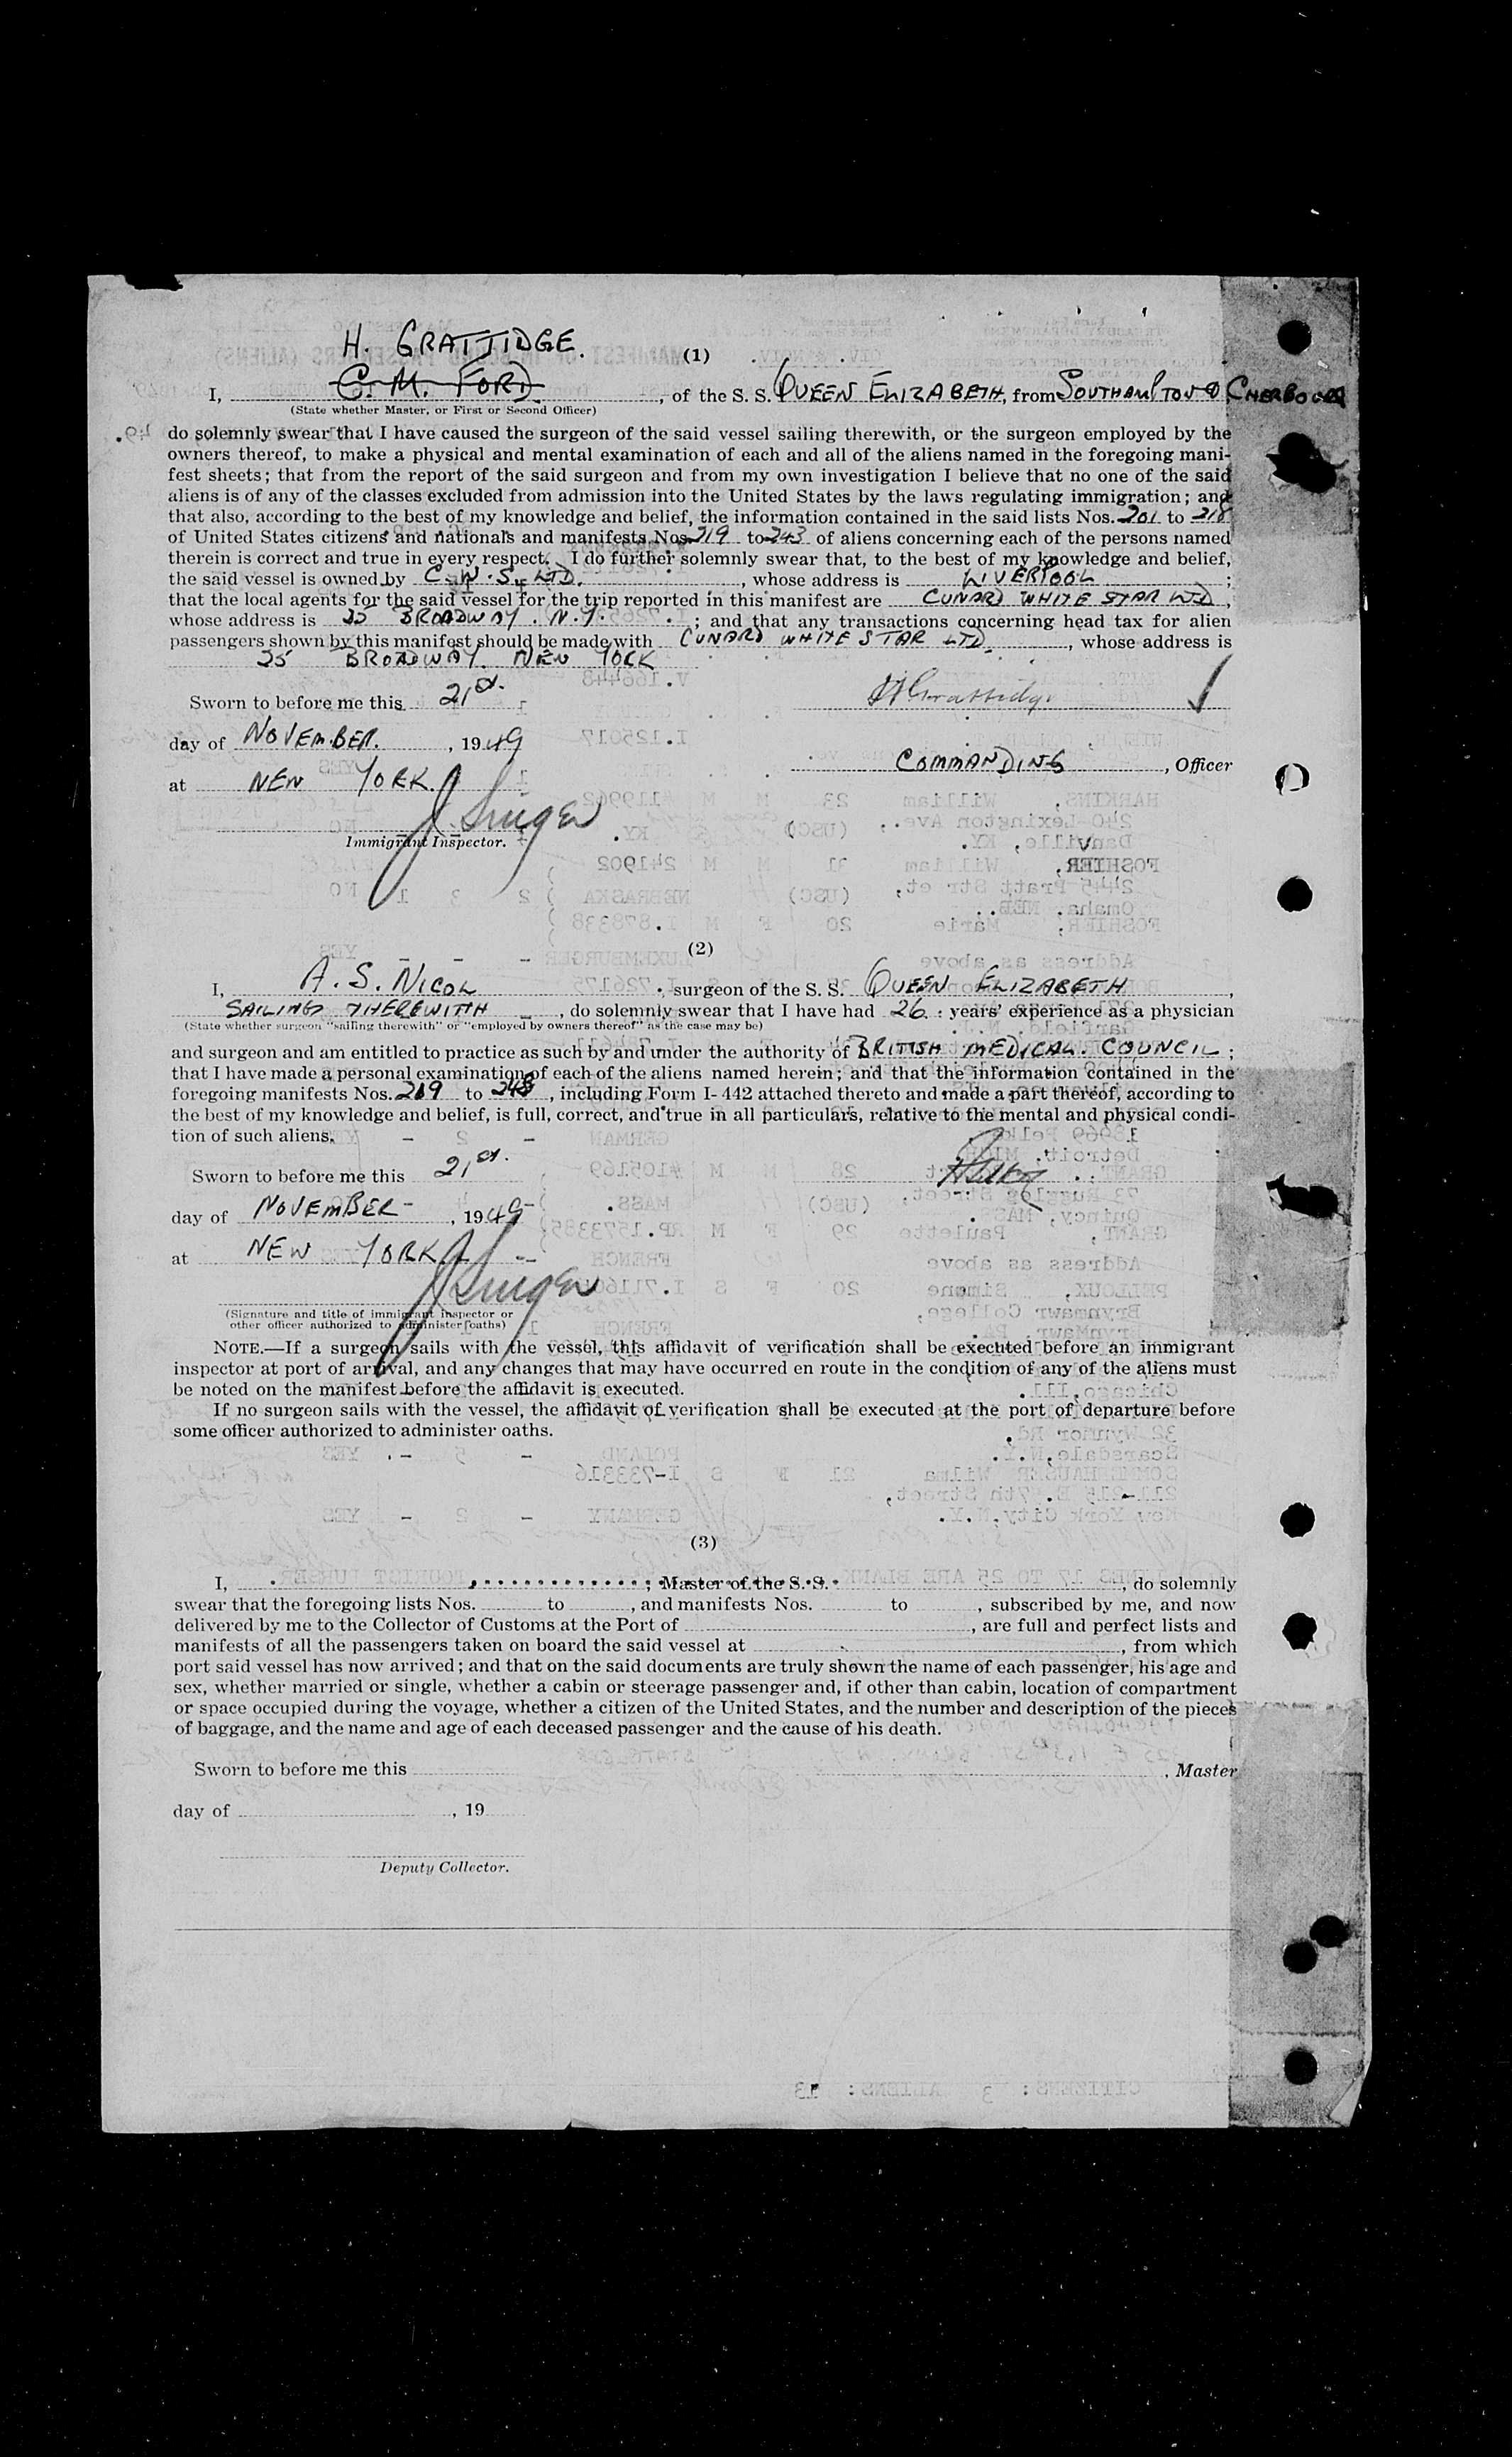 H. GRATTIDGE.
(1)
I, C. M. FORD, of the S. S. QUEEN ELIZABETH, from SOUTHAMPTON & CHERBOURG
(State whether Master, or First or Second Officer)
do solemnly swear that I have caused the surgeon of the said vessel sailing therewith, or the surgeon employed by the
owners thereof, to make a physical and mental examination of each and all of the aliens named in the foregoing mani-
fest sheets; that from the report of the said surgeon and from my own investigation I believe that no one of the said
aliens is of any of the classes excluded from admission into the United States by the laws regulating immigration; and
that also, according to the best of my knowledge and belief, the information contained in the said lists Nos. 201 to 218
of United States citizens and nationals and manifests Nos. 219 to 243 of aliens concerning each of the persons named
therein is correct and true in every respect. I do further solemnly swear that, to the best of my knowledge and belief,
the said vessel is owned by C. W. S. LTD., whose address is LIVERPOOL;
that the local agents for the said vessel for the trip reported in this manifest are CUNARD WHITE STAR LTD,
whose address is 25 BROADWAY. N.Y.; and that any transactions concerning head tax for alien
passengers shown by this manifest should be made with CUNARD WHITE STAR LTD., whose address is
25 BROADWAY. NEW YORK
Sworn to before me this 21st. H Grattidge
day of NOVEMBER., 1949
COMMANDING, Officer
at NEW YORK.
J Singer
Immigrant Inspector.
(2)
I, A. S. NICOL, surgeon of the S. S. QUEEN ELIZABETH,
SAILING THEREWITH, do solemnly swear that I have had 26 years' experience as a physician
(State whether surgeon "sailing therewith" or "employed by owners thereof" as the case may be)
and surgeon and am entitled to practice as such by and under the authority of BRITISH MEDICAL. COUNCIL;
that I have made a personal examination of each of the aliens named herein; and that the information contained in the
foregoing manifests Nos. 219 to 243, including Form I-442 attached thereto and made a part thereof, according to
the best of my knowledge and belief, is full, correct, and true in all particulars, relative to the mental and physical condi-
tion of such aliens.
Sworn to before me this 21st.
day of NOVEMBER, 1949
at NEW YORK
J Singer
(Signature and title of immigrant inspector or
other officer authorized to administer oaths)
NOTE.—If a surgeon sails with the vessel, this affidavit of verification shall be executed before an immigrant
inspector at port of arrival, and any changes that may have occurred en route in the condition of any of the aliens must
be noted on the manifest before the affidavit is executed.
If no surgeon sails with the vessel, the affidavit of verification shall be executed at the port of departure before
some officer authorized to administer oaths.
(3)
I, , Master of the S. S. , do solemnly
swear that the foregoing lists Nos. to , and manifests Nos. to , subscribed by me, and now
delivered by me to the Collector of Customs at the Port of , are full and perfect lists and
manifests of all the passengers taken on board the said vessel at , from which
port said vessel has now arrived; and that on the said documents are truly shown the name of each passenger, his age and
sex, whether married or single, whether a cabin or steerage passenger and, if other than cabin, location of compartment
or space occupied during the voyage, whether a citizen of the United States, and the number and description of the pieces
of baggage, and the name and age of each deceased passenger and the cause of his death.
Sworn to before me this , Master
day of , 19
Deputy Collector.